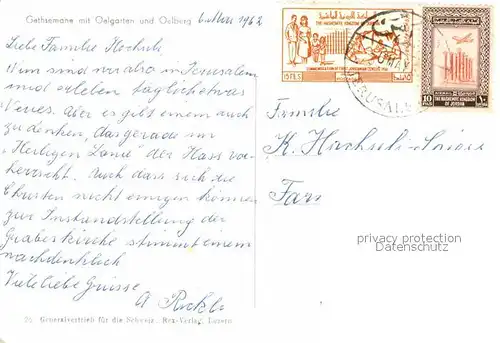 Gethsemane mit Oelgarten und Oelberg
6. Mai 1962
Liebe Familie Hochuli
Nun sind wir also in Jerusalem
und erleben täglich etwas
Neues. Aber es gibt einem auch
zu denken, das gerade im
"Heiligen Land" der Hass vor-
herrscht. Auch dass sich die
Christen nicht einigen können
zur Instandstellung der
Grabeskirche stimmt einem
nachdenklich
Viele liebe Grüsse
A
25 Generalvertrieb für die Schweiz, Rex-Verlag, Luzern
THE HASHEMITE KINGDOM OF JORDAN
COMMEMORATION OF FIRST JORDANIAN CENSUS 1961
15 FILS
JERUSALEM
10 FILS
THE HASHEMITE KINGDOM
OF JORDAN
Familie
K.
Fars
privacy protection
DELCAMPE